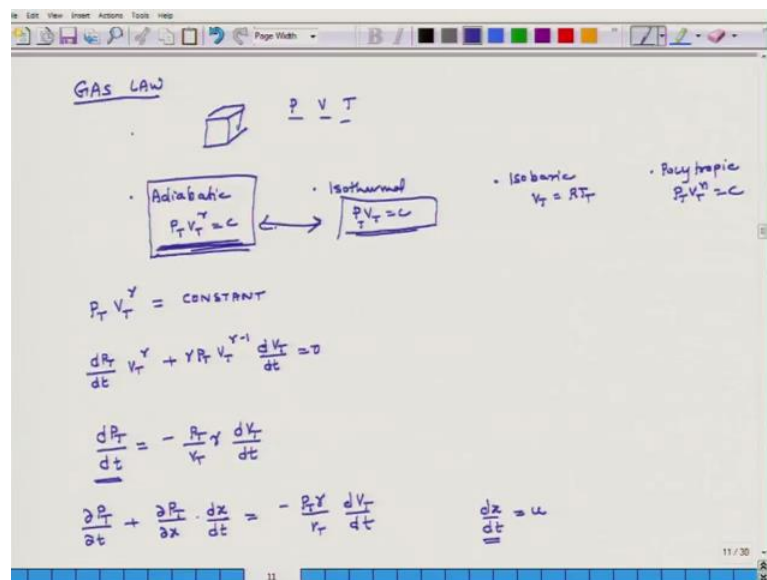 le Edit View Insert Actions Tools Help
Page Width
B I
GAS LAW
P V T
· Adiabatic · Isothermal · Isobaric · Polytropic
P_T V_T^γ = C P_T V_T = C V_T = RT_T P_T V_T^n = C
P_T V_T^γ = CONSTANT
dP_T/dt V_T^γ + γ P_T V_T^(γ-1) dV_T/dt = 0
dP_T/dt = - P_T/V_T γ dV_T/dt
∂P_T/∂t + ∂P_T/∂x · dx/dt = - P_T γ/V_T dV_T/dt dx/dt = u
11 / 30
11